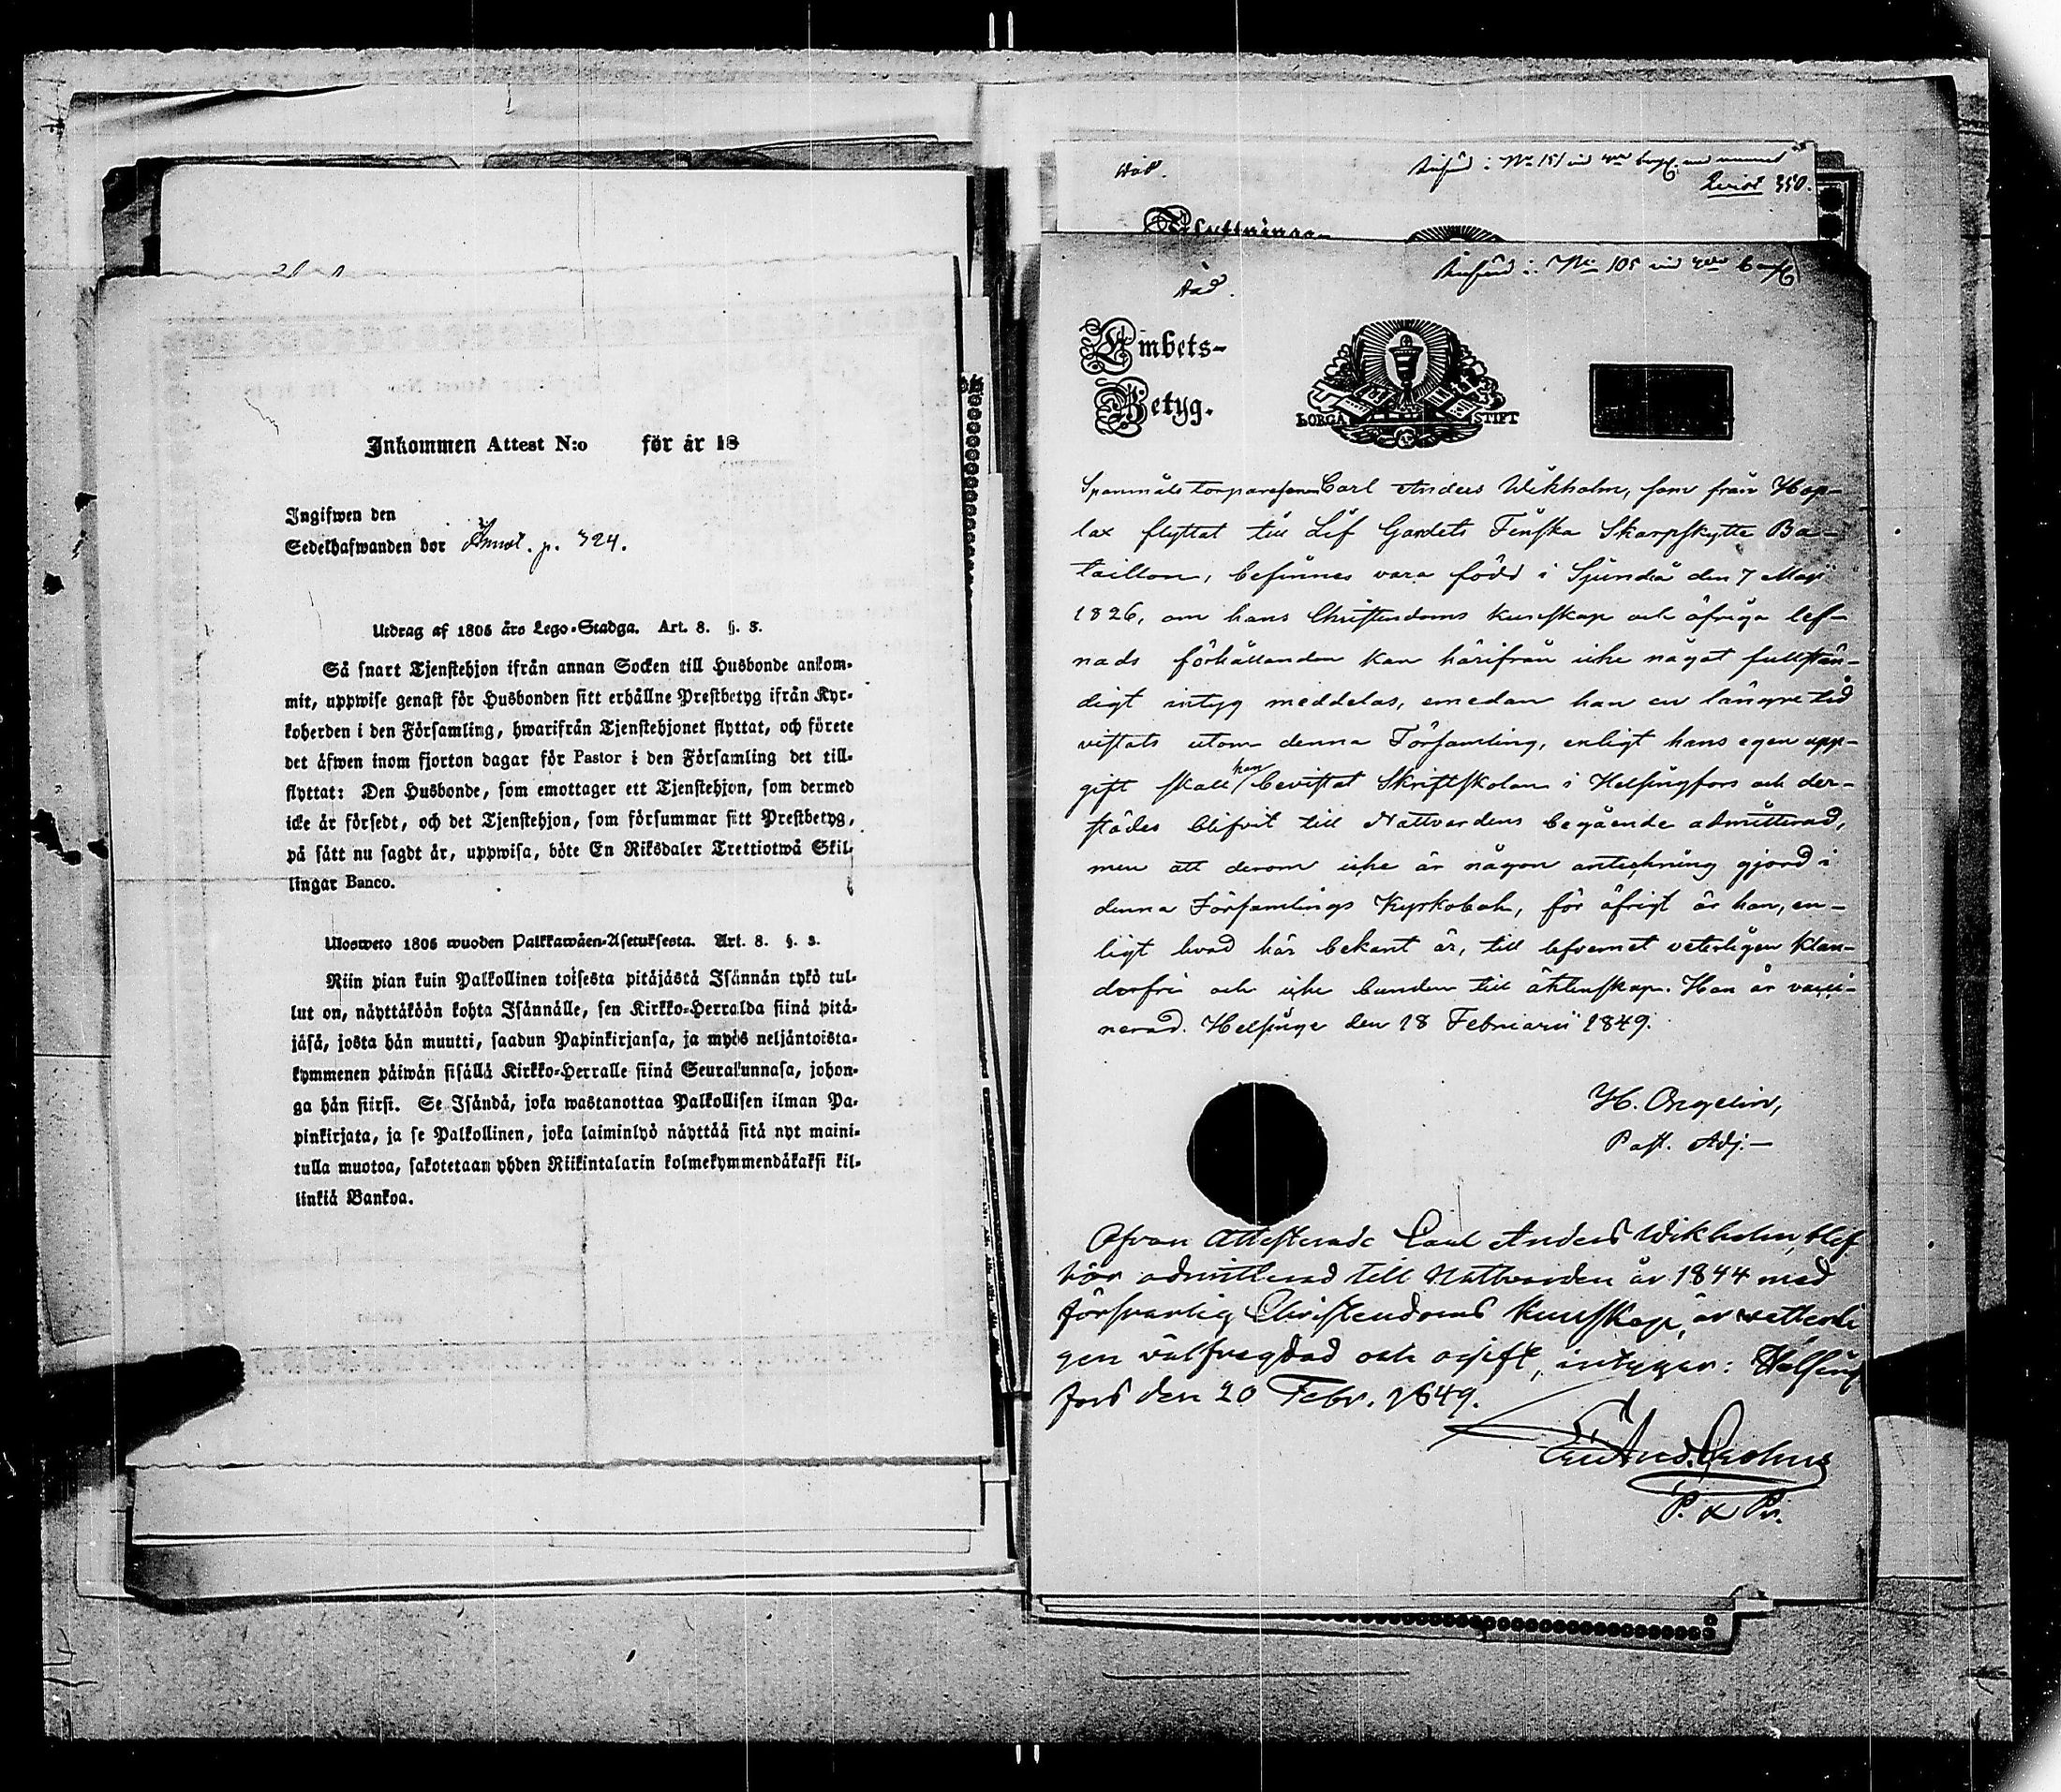 Inkommen Attest N:o för år 18
Ingifwen den
Sedelhafwanden bor Annot. p. 324.
Utdrag af 1805 års Lego-Stadga. Art. 8. §. 3.
Så snart Tjenstehjon ifrån annan Socken till Husbonde ankom-
mit, uppwise genast för Husbonden sitt erhållne Prestbetyg ifrån Kyr-
koherden i den Församling, hwarifrån Tjenstehjonet flyttat, och förete
det äfwen inom fjorton dagar för Pastor i den Församling det till-
flyttat: Den Husbonde, som emottager ett Tjenstehjon, som dermed
icke är försedt, och det Tjenstehjon, som försummar sitt Prestbetyg,
på sätt nu sagdt är, uppwisa, böte En Riksdaler Trettiotwå Skil-
lingar Banco.
Ulosweto 1805 wuoden Palkkawäen-Asetuksesta. Art. 8. §. 3.
Niin pian kuin Palkollinen toisesta pitäjästä Isännän tykö tul-
lut on, näyttäköön kohta Isännälle, sen Kirkko-Herralda siinä pitä-
jäsä, josta hän muutti, saadun Papinkirjansa, ja myös neljäntoista-
kymmenen päiwän sisällä Kirkko-Herralle siinä Seurakunnasa, johon-
ga hän siirsi. Se Isändä, joka wastanottaa Palkollisen ilman Pa-
pinkirjata, ja se Palkollinen, joka laiminlyö näyttää sitä nyt maini-
tulla muotoa, sakotetaan yhden Riikintalarin kolmekymmendäkaksi kil-
linkiä Bankoa.
Qvist 350.
Beflyttnings-
N:o 105 vid
Ämbets-
Betyg.
BORGÅ STIFT
Spanmåls torparesonen Carl Anders Wikholm, som från Hop-
lax flyttat till Lif Gardets Finska Skarpskytte Ba-
taillon, befinnes vara född i Sjundeå den 7 Maji
1826, om hans Christendoms kunskap och öfriga lef-
nads förhållanden kan härifrån icke något fullstän-
digt intyg meddelas, emedan han en längre tid
vistats utom denna Församling, enligt hans egen upp-
gift skall han bevistat Skriftskolan i Helsingfors och der-
städes blifvit till Nattvardens begående admitterad,
men att derom icke är någon anteckning gjord i
denna Församlings Kyrkobok, för öfrigt är han, en-
ligt hvad här bekant är, till lefvernet veterligen klan-
derfri och icke bunden till äktenskap. Han är vacci-
nerad. Helsinge den 18 Februarii 1849.
H. Ongelin,
Past. Adj.
Ofvan Attesterade Carl Anders Wikholm, blef
här admitterad till Nattvarden år 1844 med
försvarlig Christendoms kunskap, är vetterli
gen välfregdad och ogift, intygar: Helsing
fors den 20 Febr. 1849.